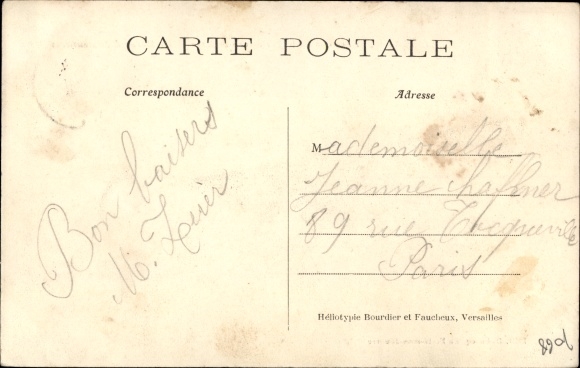 CARTE POSTALE
Correspondance
Adresse
Bon baisers
M.
Mademoiselle
Jeanne
89 rue Tocqueville
Paris
Héliotypie Bourdier et Faucheux, Versailles